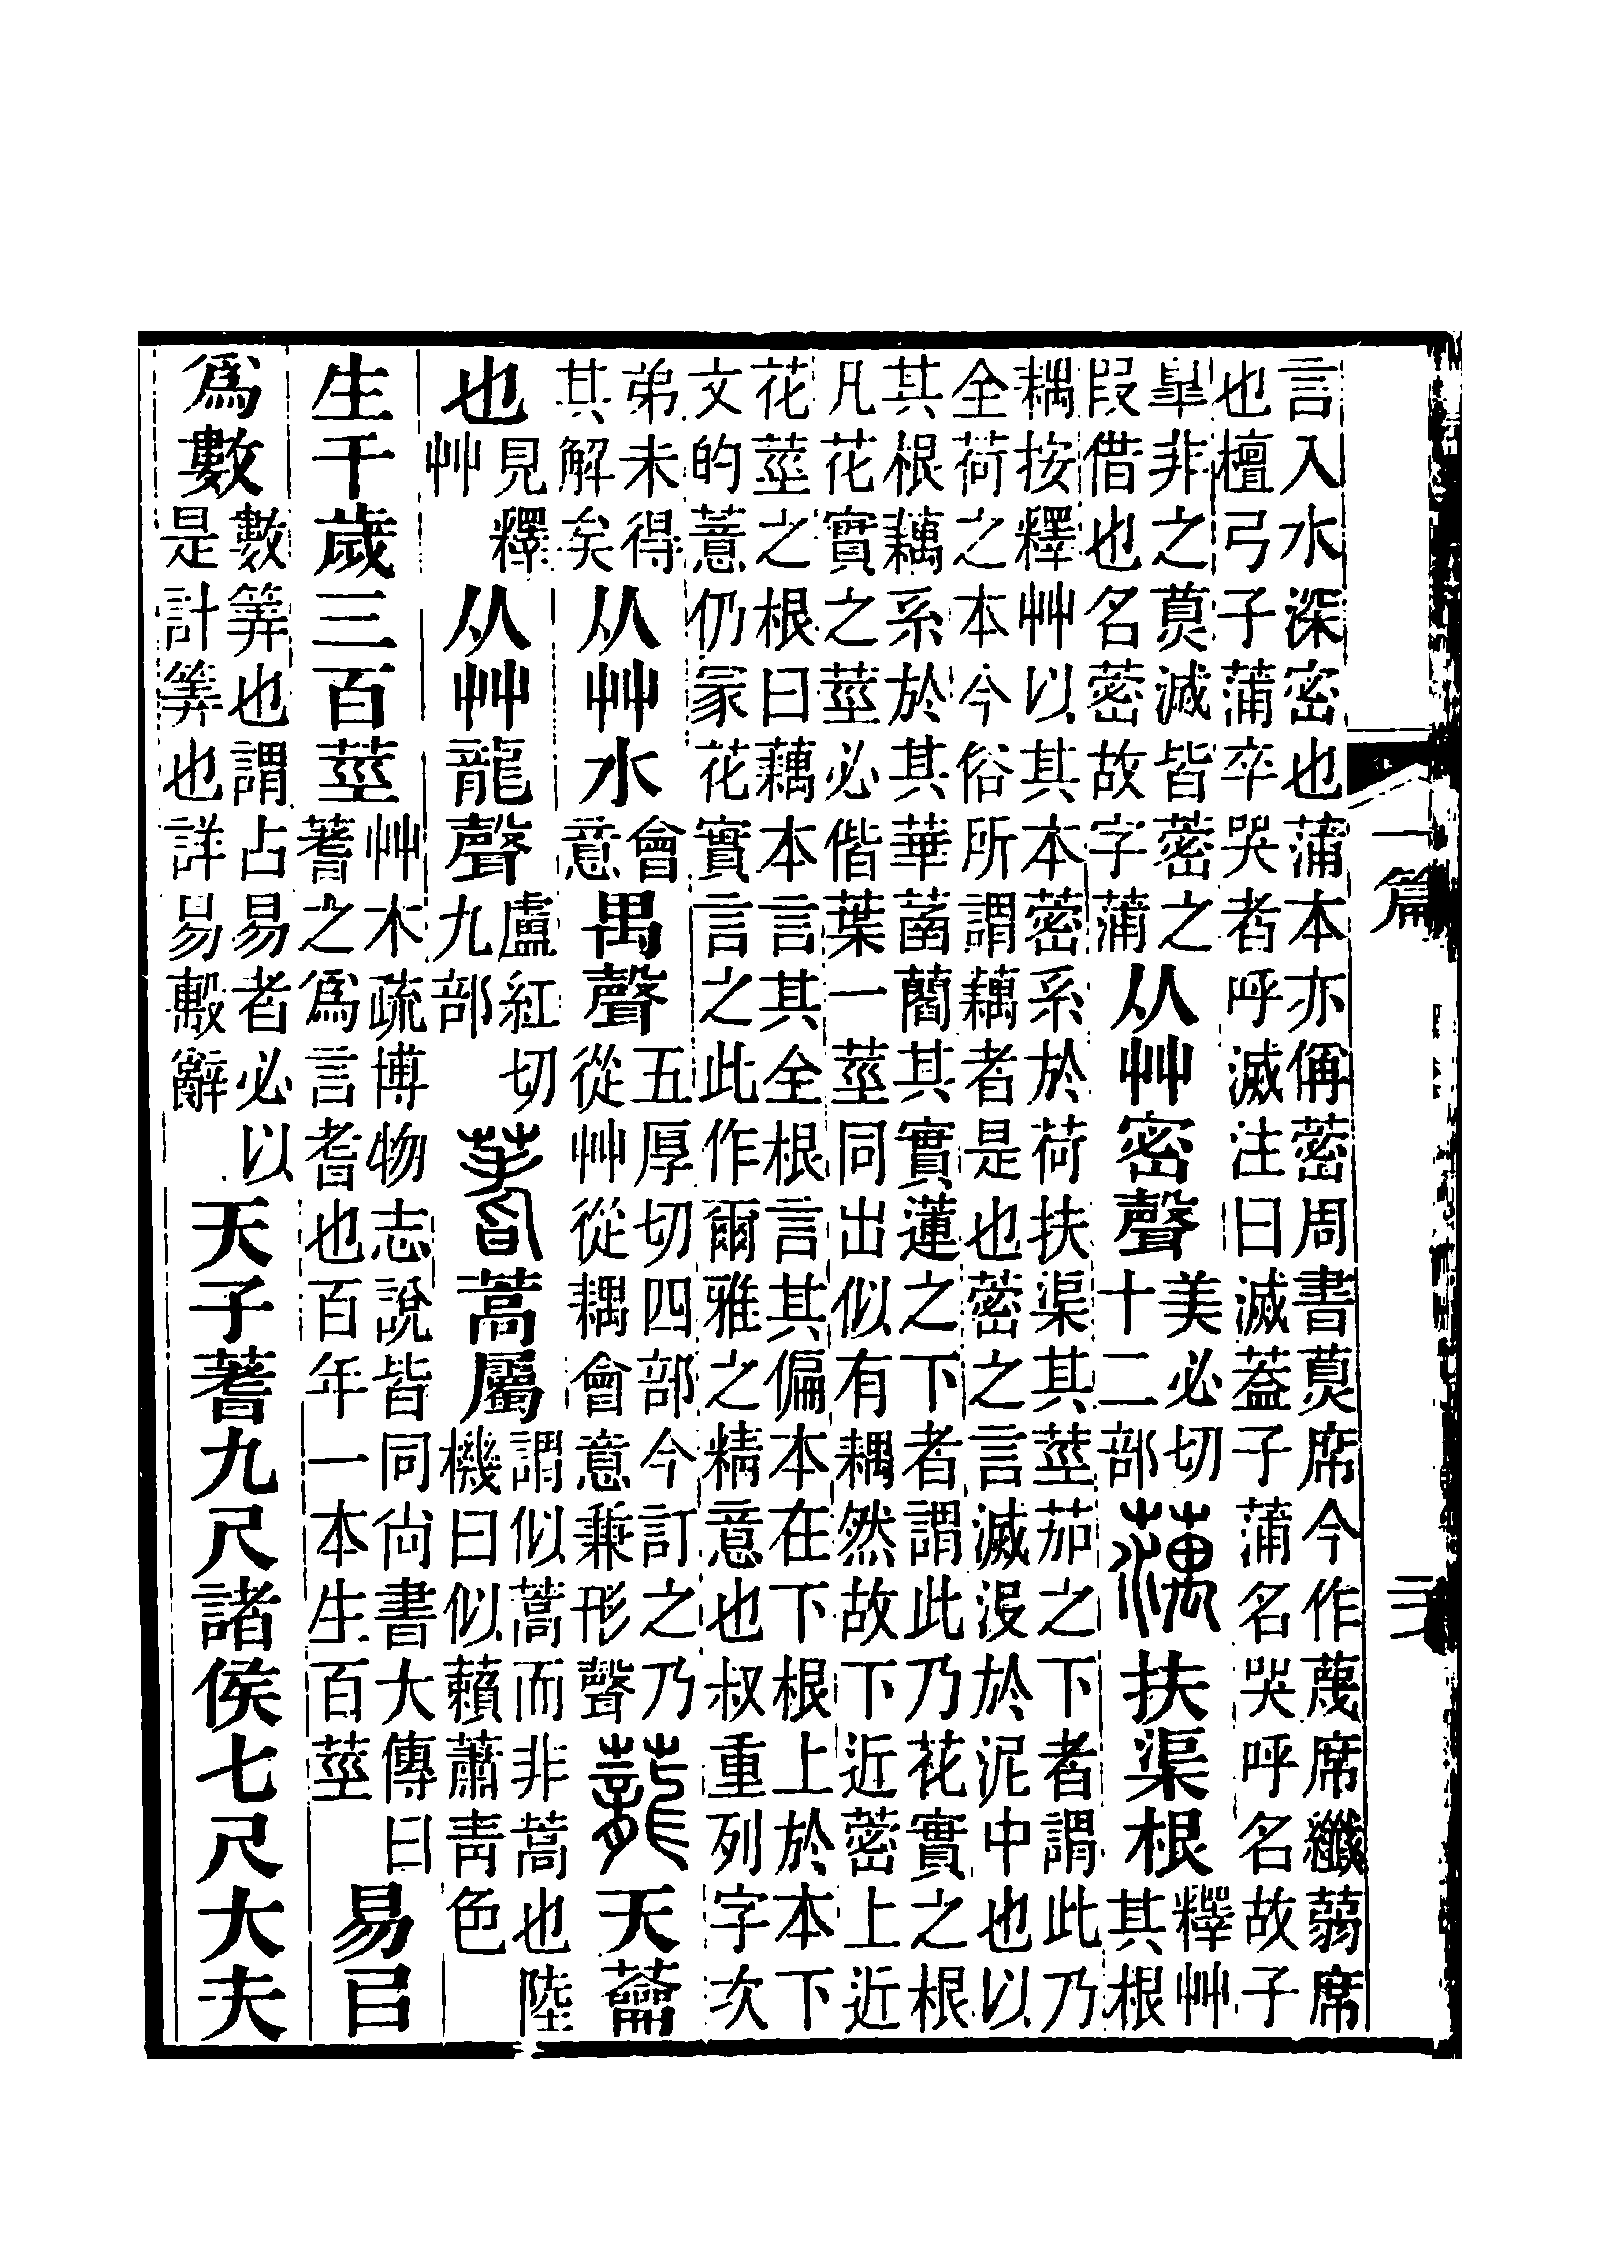 言入水深密也蒲本亦偁蔤周書莫席今作蔑席纖蒻席
也檀弓子蒲卒哭者呼滅注曰滅蓋子蒲名哭呼名故子
臯非之莫滅皆蔤之
叚借也名蔤故字蒲
从艸密聲
美必切
十二部
蕅扶渠根
釋艸
其根
耦按釋艸以其本蔤系於荷扶渠其莖茄之下者謂此乃
全荷之本今俗所謂藕者是也蔤之言滅沒於泥中也以
其根藕系於其華菡藺其實蓮之下者謂此乃花實之根
凡花實之莖必偕葉一莖同出似有耦然故下近蔤上近
花莖之根曰藕本言其全根言其偏本在下根上於本下
文的薏仍冡花實言之此作爾雅之精意也叔重列字次
弟未得
其解矣
从艸水
會
意
禺聲
五厚切四部今訂之乃
從艸從耦會意兼形聲
蘢天蘥
也
見釋
艸
从艸龍聲
盧紅切
九部
蓍蒿屬
謂似蒿而非蒿也陸
機曰似藾蕭靑色
生千歲三百莖
艸木疏博物志說皆同尚書大傳曰
蓍之爲言耆也百年一本生百莖
易㠯
爲數
數筭也謂占易者必以
是計筭也詳易毄辭
天子蓍九尺諸侯七尺大夫
一篇